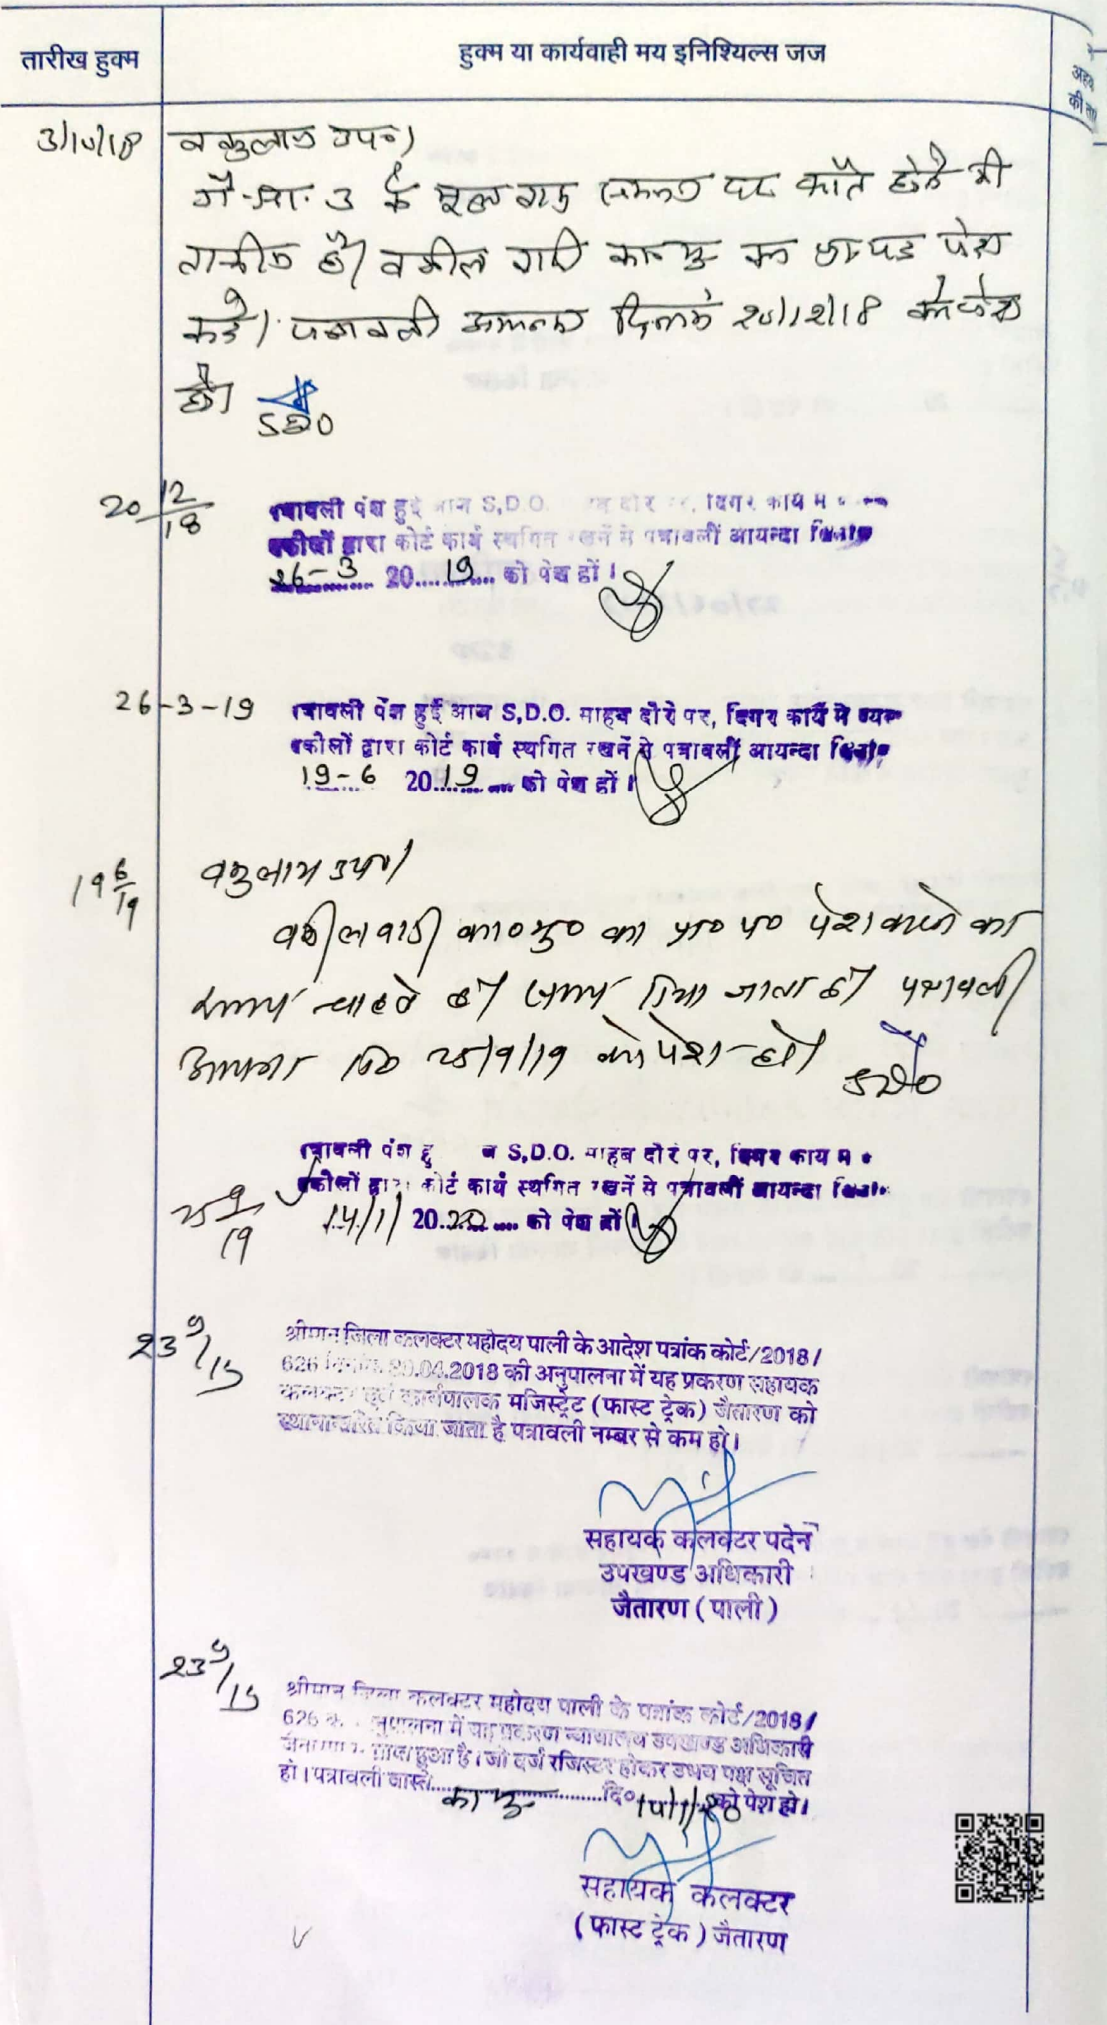 तारीख हुक्म
हुक्म या कार्यवाही मय इनिश्यिल्स जज
अहल
की ता
3/10/18
वकुलाय उप०।
के पेश
है। वकील का पेश
करे। पत्रावली 20/12/18 को पेश
हो।
SDO
20 12/18
पत्रावली पेश हुई आज S.D.O. दौरे पर, दिगर कार्य मे
वकीलों द्वारा कोर्ट कार्य स्थगित रखनें से पत्रावलीं आयन्दा
26-3 20 19 को पेश हों।
26-3-19
पत्रावली पेश हुई आज S.D.O. साहब दौरे पर, दिगर कार्य मे व्यस्त
वकीलों द्वारा कोर्ट कार्य स्थगित रखनें से पत्रावलीं आयन्दा
19-6 2019 को पेश हों।
19 6/19
वकुलाय उप०।
वकील वादी का०मु० का प्रा० प० पेश करने का
समय चाहते है। समय दिया जाता है। पत्रावली
आयन्दा दि० 25/9/19 को पेश हो।
SDO
पत्रावली पेश हु S.D.O. साहब दौरे पर, दिगर कार्य मे
वकीलों द्वारा कोर्ट कार्य स्थगित रखनें से पत्रावलीं आयन्दा
25 9/19
14/1/ 2020 को पेश हों।
23 9/19
श्रीमान जिला कलक्टर महोदय पाली के आदेश पत्रांक कोर्ट/2018/
626 दिनांक .04.2018 की अनुपालना में यह प्रकरण सहायक
कलक्टर एवं कार्यपालक मजिस्ट्रेट (फास्ट ट्रेक) जैतारण को
स्थानान्तरित किया जाता है पत्रावली नम्बर से कम हो।
सहायक कलक्टर पदेन
उपखण्ड अधिकारी
जैतारण (पाली)
23 9/19
श्रीमान जिला कलक्टर महोदय पाली के पत्रांक कोर्ट/2018/
626 अनुपालना में यह प्रकरण न्यायालय उपखण्ड अधिकारी
जैतारण प्राप्त हुआ है। जो दर्ज रजिस्टर होकर उभय पक्ष सूचित
हो। पत्रावली वास्ते का मु दि० 14/1/20 को पेश हो।
सहायक कलक्टर
(फास्ट ट्रेक) जैतारण